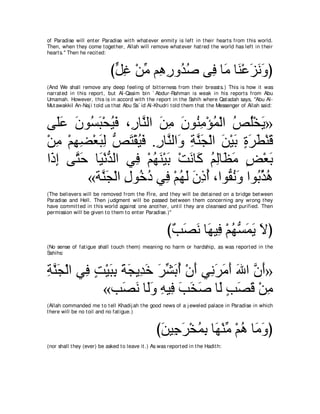 of Paradise will enter Paradise with whatever enmity is left in their hearts from this world.
Then, when they come together, Allah will remove whatever hatred the world has left in their
hearts." Then he recited:
(وَنَزَعْنَا مَا فِى صُدُورِهِم مِّنْ غِلٍّ)
(And We shall remove any deep feeling of bitterness from their breasts.) This is how it was
narrated in this report, but Al-Qasim bin `Abdur-Rahman is weak in his reports from Abu
Umamah. However, this is in accord with the report in the Sahih where Qatadah says, "Abu Al-
Mutawakkil An-Naji told us that Abu Sa`id Al-Khudri told them that the Messenger of Allah said:
«يَخْلُصُ الْمُؤْمِنُونَ مِنَ النَّارِ، فَيُحْبَسُونَ عَلَى
قَنْطَرَةٍ بَيْنَ الْجَنَّةِ وَالنَّارِ. فَيُقْتَصُّ لِبَعْضِهِمْ مِنْ
بَعْضٍ مَظَالِمُ كَانَتْ بَيْنَهُمْ فِي الدُّنْيَا حَتَّى إِذَا
هُذِّبُوا وَنُقُّوا، أُذِنَ لَهُمْ فِي دُخُولِ الْجَنَّة»
(The believers will be removed from the Fire, and they will be detained on a bridge between
Paradise and Hell. Then judgment will be passed between them concerning any wrong they
have committed in this world against one another, until they are cleansed and purified. Then
permission will be given to them to enter Paradise.)"
(لاَ يَمَسُّهُمْ فِيهَا نَصَبٌ)
(No sense of fatigue shall touch them) meaning no harm or hardship, as was reported in the
Sahihs:
«أَنَّ اللهَ أَمَرَنِي أَنْ أُبَشِّرَ خَدِيجَةَ بِبَيْتٍ فِي الْجَنَّةِ
مِنْ قَصَبٍ لَا صَخَبَ فِيهِ وَلَا نَصَب»
(Allah commanded me to tell Khadijah the good news of a jeweled palace in Paradise in which
there will be no toil and no fatigue.)
(وَمَا هُمْ مِّنْهَا بِمُخْرَجِينَ)
(nor shall they (ever) be asked to leave it.) As was reported in the Hadith: